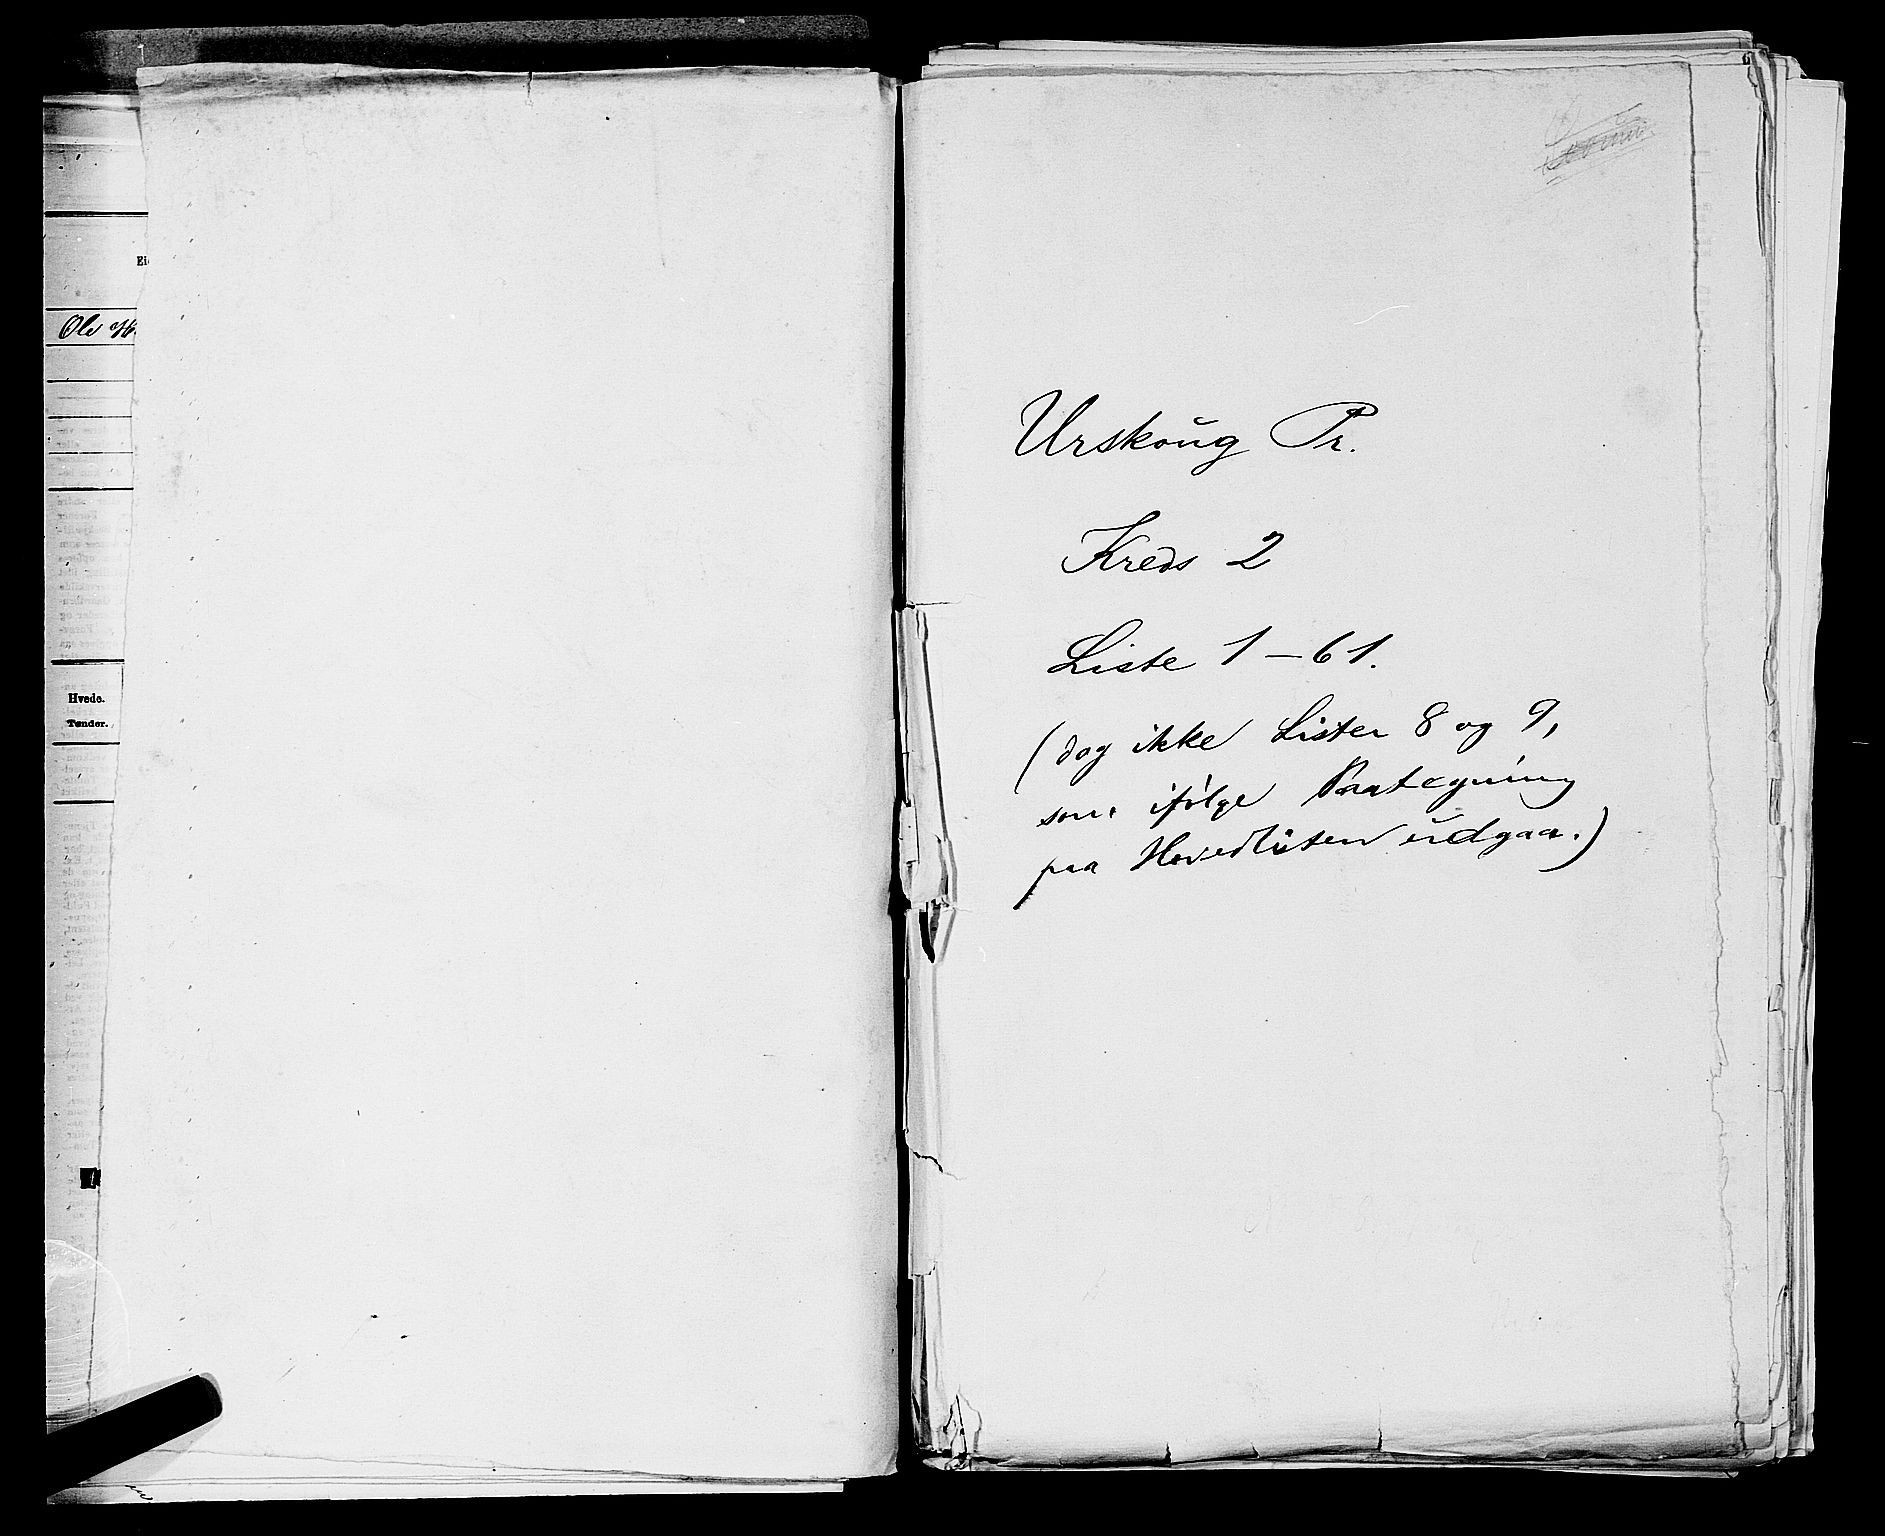 Ole H
Hvede.
Tønder.
Urskoug Pr.
Kreds 2
Liste 1 – 61.
(dog ikke Lister 8 og 9,
som ifølge Paategning
paa Hovedlisten udgaar.)